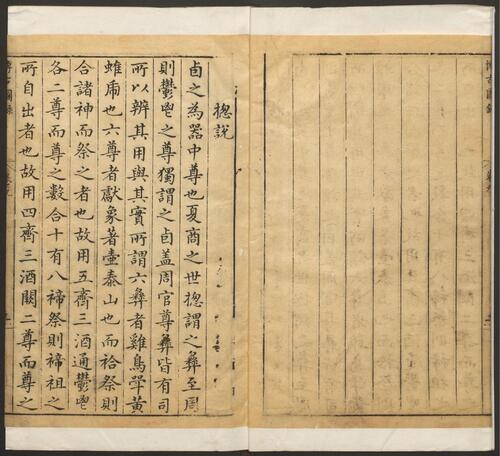 捴説
卣之為器中尊也夏商之世捴謂之彝至周
則鬱鬯之尊獨謂之卣盖周官尊彝皆有司
所以辨其用與其實所謂六彝者雞鳥斝黄
蜼虎也六尊者獻象著壺泰山也而祫祭則
合諸神而祭之者也故用五齊三酒通鬱鬯
各二尊而尊之數合十有八禘祭則禘祖之
所自出者也故用四齊三酒闕二尊而尊之